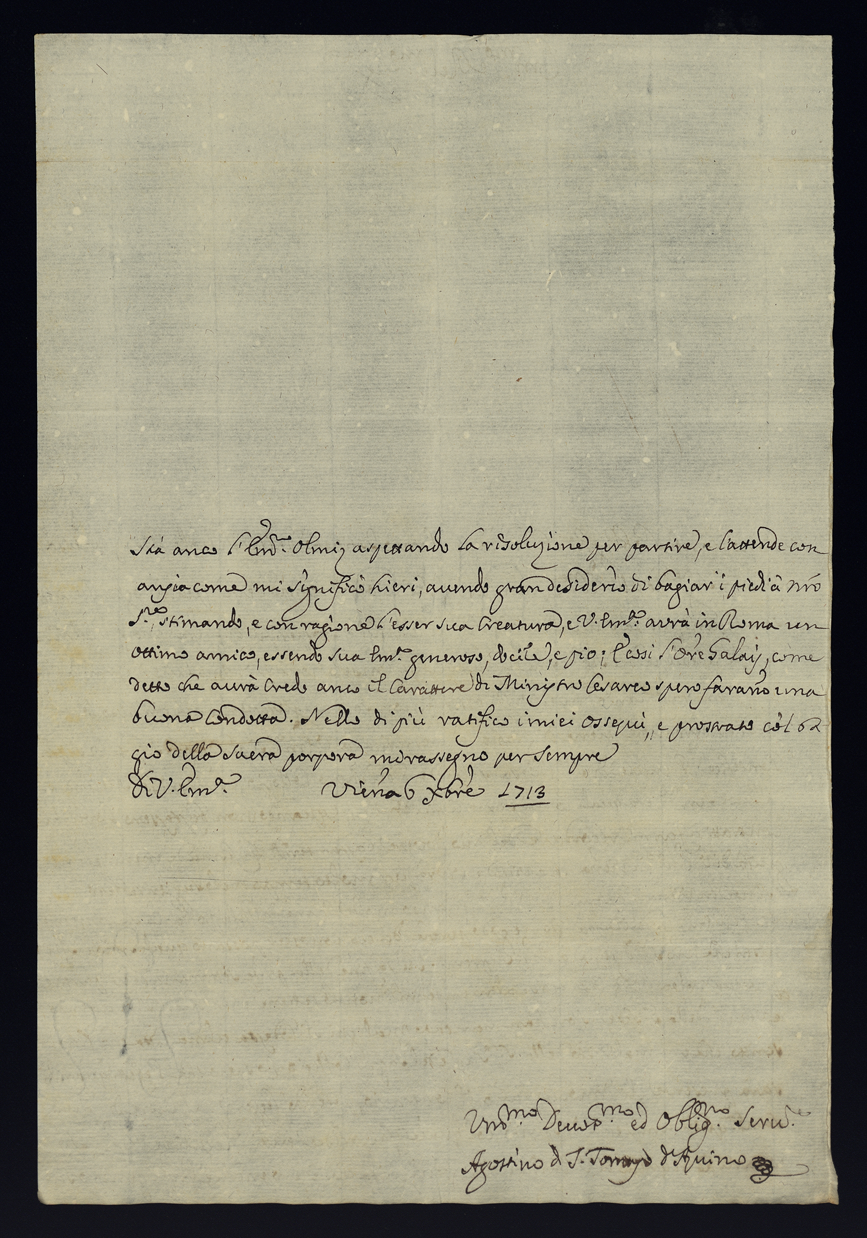 Stà anco l'Em.mo Olmiz aspettando la risoluzione per partire, e l'attende con
ansia come mi significò hieri, avendo gran desiderio di bagiar i piedi à Nro
S.re, stimando, e con ragione l'esser sua Creatura, e V. Em.za avrà in Roma un
ottimo amico, essendo sua Em.za generoso, docile, e pio; E così l'Ore Galas, come
detto che avrà credo anco il Carattere di Ministro Cesareo spero farano una
buona Condotta. Nello di più ratifico i miei ossequi, e prostrato col ba-
gio della Sacra porpora mi rassegno per sempre
Di V. Em.za Viena 6 Xbre 1713
Um.mo Devot.mo ed Oblig.mo Serv.e
Agostino di S. Tomaso d'Aquino